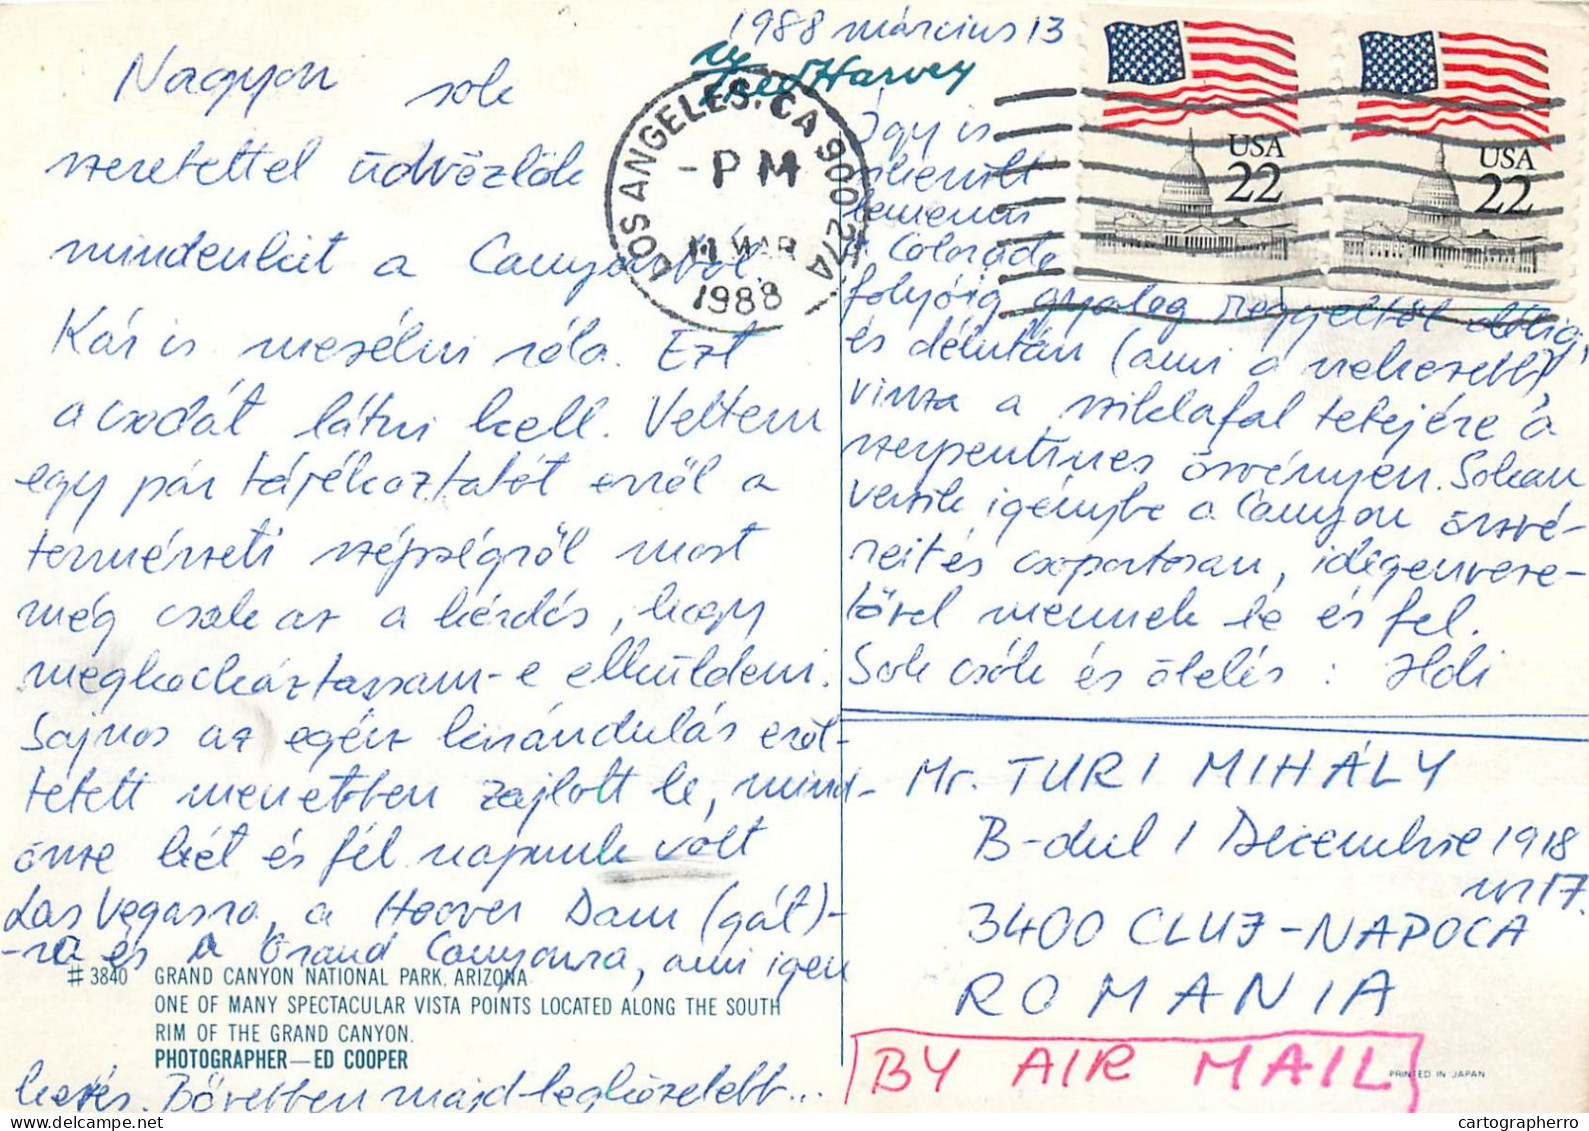 1988 március 13
Nagyon sok
szeretettel üdvözlök
mindenkit a Canyonból
Kár is mesélni róla. Ezt
a csodát látni kell. Vettem
egy pár tájékoztatót erről a
természeti szépségről most
még csak az a kérdés, hogy
megkockáztassam-e elküldeni.
Sajnos az egész kirándulás eről-
tetett menetben zajlott le, mind-
össze két és fél napunk volt
Las Vegasra, a Hoover Dam (gát)-
-ra és a Grand Canyonra, ami igen
# 3840 GRAND CANYON NATIONAL PARK, ARIZONA
ONE OF MANY SPECTACULAR VISTA POINTS LOCATED ALONG THE SOUTH
RIM OF THE GRAND CANYON.
PHOTOGRAPHER—ED COOPER
kevés. Bővebben majd legközelebb...
Fred Harvey
LOS ANGELES, CA 900 27A
-PM
11 MAR
1988
USA
22
USA
22
Így is
sikerült
lemenni
a Colorado
folyóig gyalog reggeltől délig,
és délután (ami a nehezebb)
vissza a sziklafal tetejére a
szerpentines ösvényen. Sokan
veszik igénybe a Canyon öszvé-
reit és csoportosan, idegenveze-
tővel mennek le és fel.
Sok csók és ölelés: Ildi
Mr. TURI MIHÁLY
B-dul 1 Decembrie 1918
nr 17.
3400 CLUJ-NAPOCA
ROMANIA
BY AIR MAIL
PRINTED IN JAPAN
cartographerro